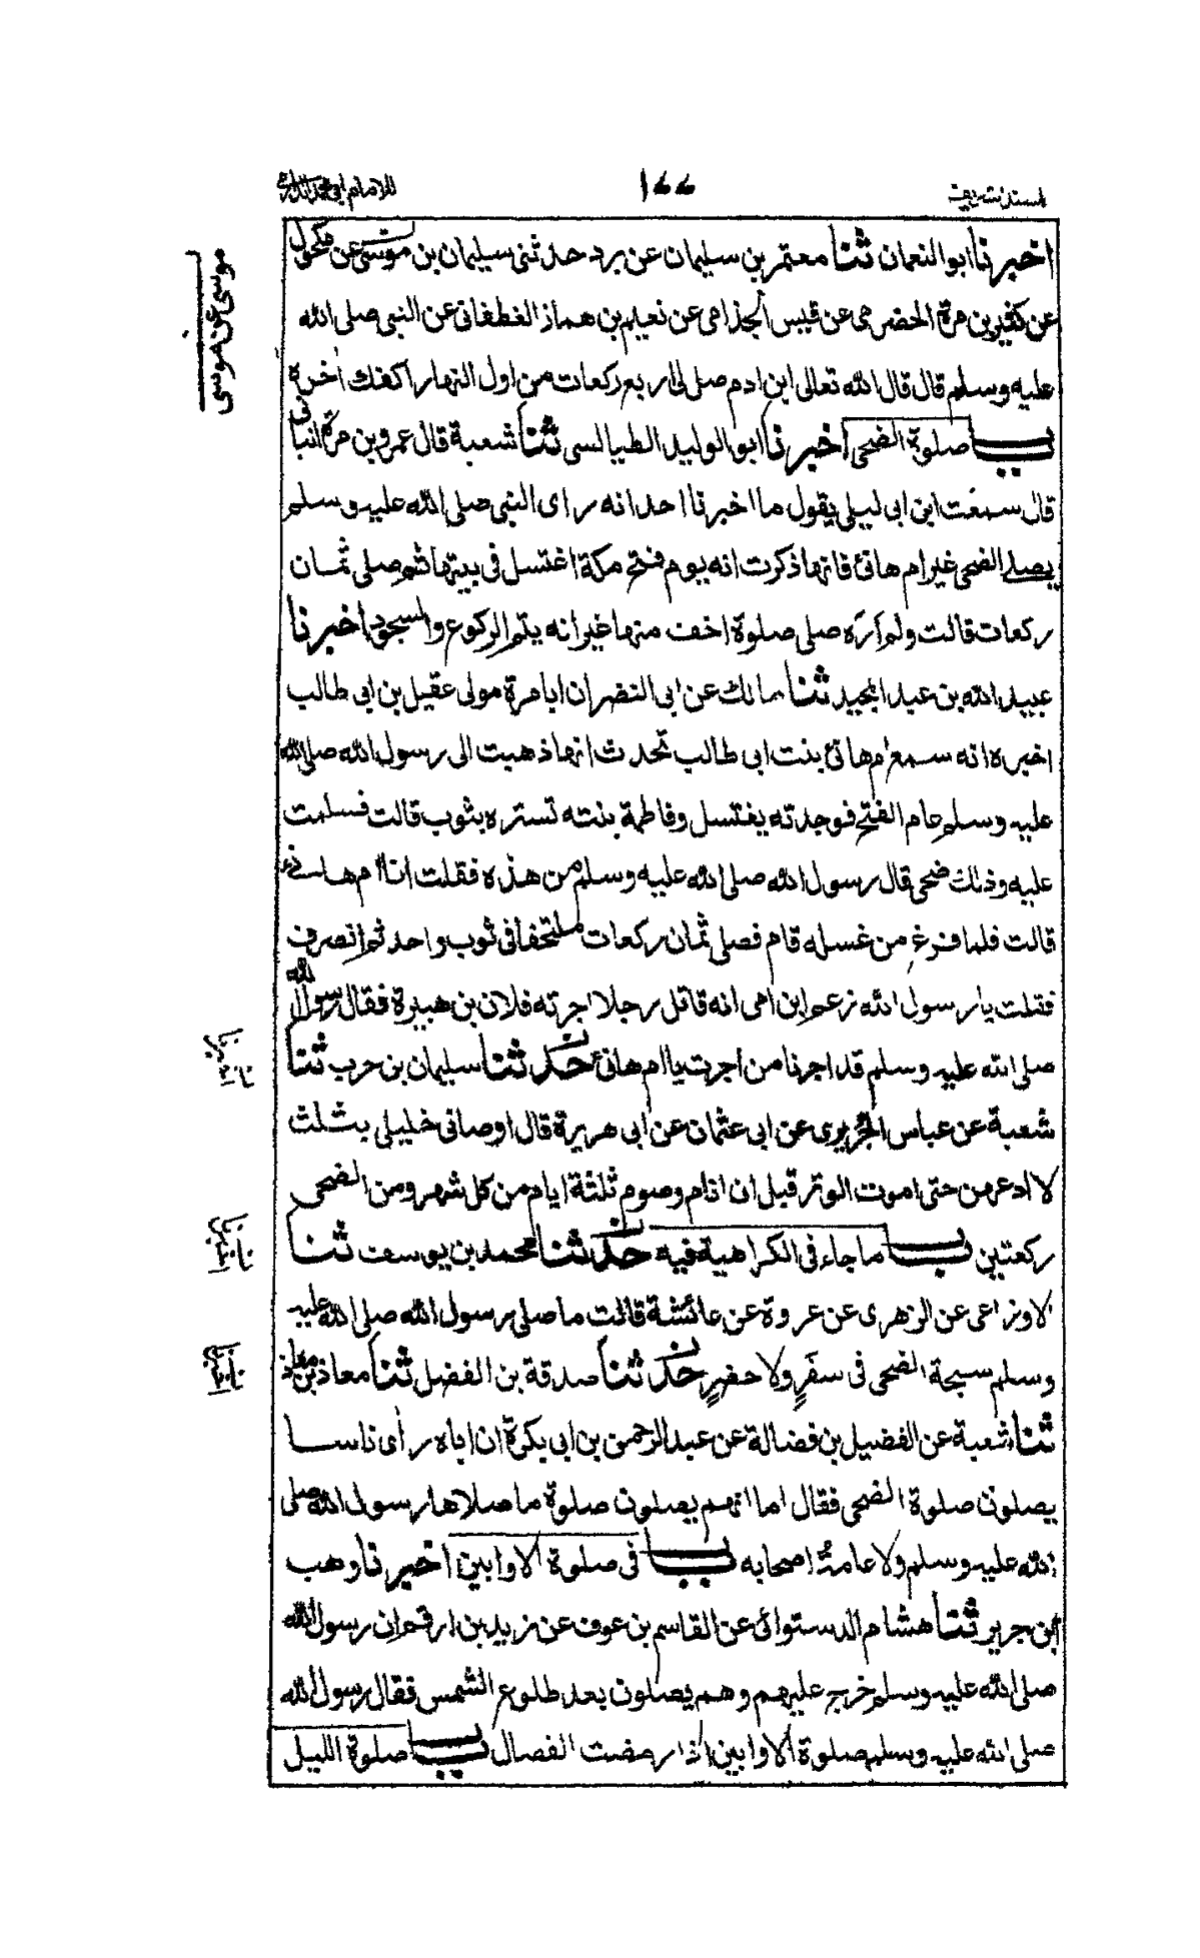 المسند الشريف
١٧٧
للامام ابى محمد الدارمى
اخبرنا ابو النعمان ثنا معتمر بن سليمان عن برد حدثنى سليمان بن موسى عن مكحول
عن كثير بن مرة الحضرمى عن قيس الجذامى عن نعيم بن هماز الغطفانى عن النبى صلى الله
عليه وسلم قال قال الله تعالى ابن ادم صل لى اربع ركعات من اول النهار اكفك اخره
باب صلوة الضحى اخبرنا ابو الوليد الطيالسى ثنا شعبة قال عمرو بن مرة انبانى
قال سمعت ابن ابى ليلى يقول ما اخبرنا احد انه راى النبى صلى الله عليه وسلم
يصلى الضحى غير ام هانئ فانها ذكرت انه يوم فتح مكة اغتسل فى بيتها ثم صلى ثمان
ركعات قالت ولم اره صلى صلوة اخف منها غير انه يتم الركوع والسجود اخبرنا
عبيد الله بن عبد المجيد ثنا مالك عن ابى النضر ان ابا مرة مولى عقيل بن ابى طالب
اخبره انه سمع ام هانئ بنت ابى طالب تحدث انها ذهبت الى رسول الله صلى الله
عليه وسلم عام الفتح فوجدته يغتسل وفاطمة بنته تستره بثوب قالت فسلمت
عليه وذلك ضحى قال رسول الله صلى الله عليه وسلم من هذه فقلت انا ام هانئ
قالت فلما فرغ من غسله قام فصلى ثمان ركعات ملتحفا فى ثوب واحد ثم انصرف
فقلت يا رسول الله زعم ابن امى انه قاتل رجلا اجرته فلان بن هبيرة فقال رسول الله
صلى الله عليه وسلم قد اجرنا من اجرت يا ام هانئ حدثنا سليمان بن حرب ثنا
شعبة عن عباس الجريرى عن ابى عثمان عن ابى هريرة قال اوصانى خليلى بثلث
لا ادعهن حتى اموت الوتر قبل ان انام وصوم ثلثة ايام من كل شهر ومن الضحى
ركعتين باب ما جاء فى الكراهية فيه حدثنا محمد بن يوسف ثنا
الاوزاعى عن الزهرى عن عروة عن عائشة قالت ما صلى رسول الله صلى الله عليه
وسلم سبحة الضحى فى سفر ولا حضر حدثنا صدقة بن الفضل ثنا معاذ بن معاذ
ثنا شعبة عن الفضيل بن فضالة عن عبد الرحمن بن ابى بكرة ان اباه رأى ناسا
يصلون صلوة الضحى فقال اما انهم يصلون صلوة ما صلاها رسول الله صلى
الله عليه وسلم ولا عامة اصحابه باب فى صلوة الاوابين اخبرنا وهب
ابن جرير ثنا هشام الدستوائى عن القاسم بن عوف عن زيد بن ارقم ان رسول الله
صلى الله عليه وسلم خرج عليهم وهم يصلون بعد طلوع الشمس فقال رسول الله
صلى الله عليه وسلم صلوة الاوابين اذا رمضت الفصال باب صلوة الليل
موسى عن موسى
اخبرنا
اخبرنا
اخبرنا